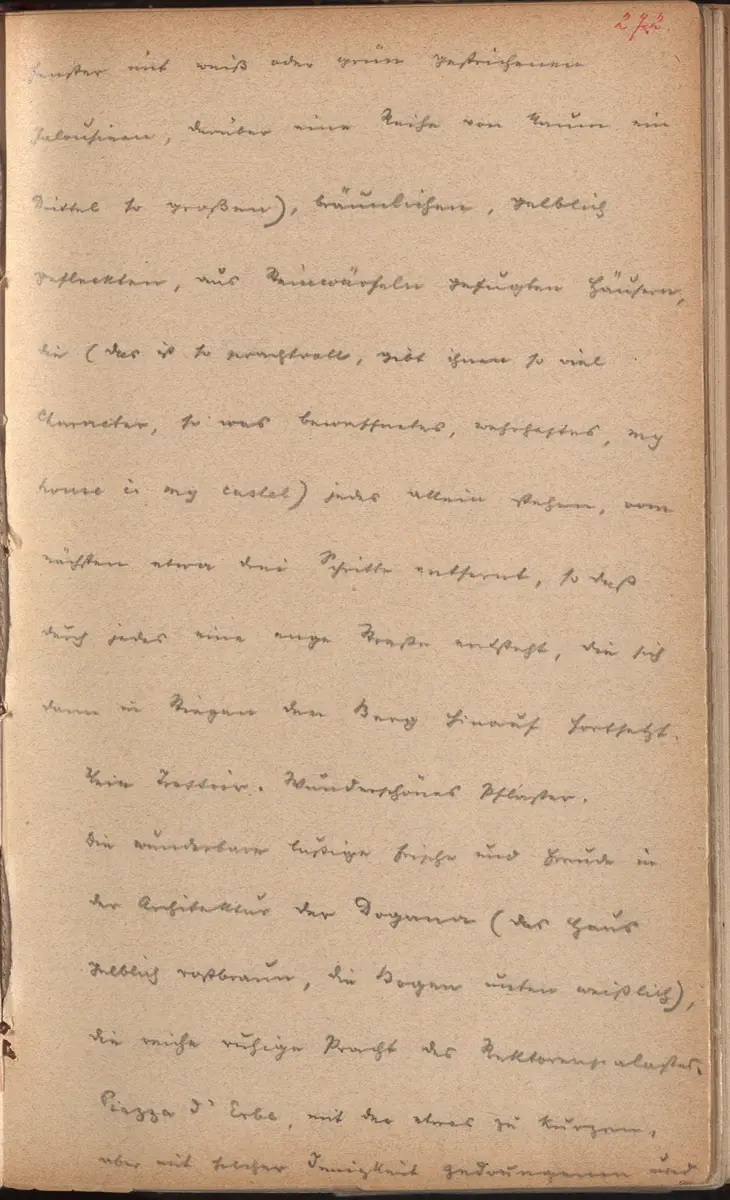 272.
Fenster mit weiß oder grün gestrichenen
Jalousieen, darüber eine Reihe von kaum ein
Drittel so großen), bräunlichen, gelblich
gefleckten, aus Steinwürfeln gefugten Häusern,
die (das ist so prachtvoll, gibt ihnen so viel
Character, so was bewaffnetes, wehrhaftes, my
house is my castel) jedes allein stehen, vom
nächsten etwa drei Schritte entfernt, so daß
durch jedes eine enge Straße entsteht, die sich
dann in Stiegen den Berg hinauf fortsetzt.
Kein Trottoir. Wunderschönes Pflaster.
Die wunderbare lustige Frische und Freude in
der Architektur der Dogana (das Haus
gelblich rostbraun, die Bogen unten weißlich),
die reiche ruhige Pracht des Rektorenpalastes.
Piazza d'Erbe, mit der etwas zu kurzen,
aber mit solcher Innigkeit gedrungenen und